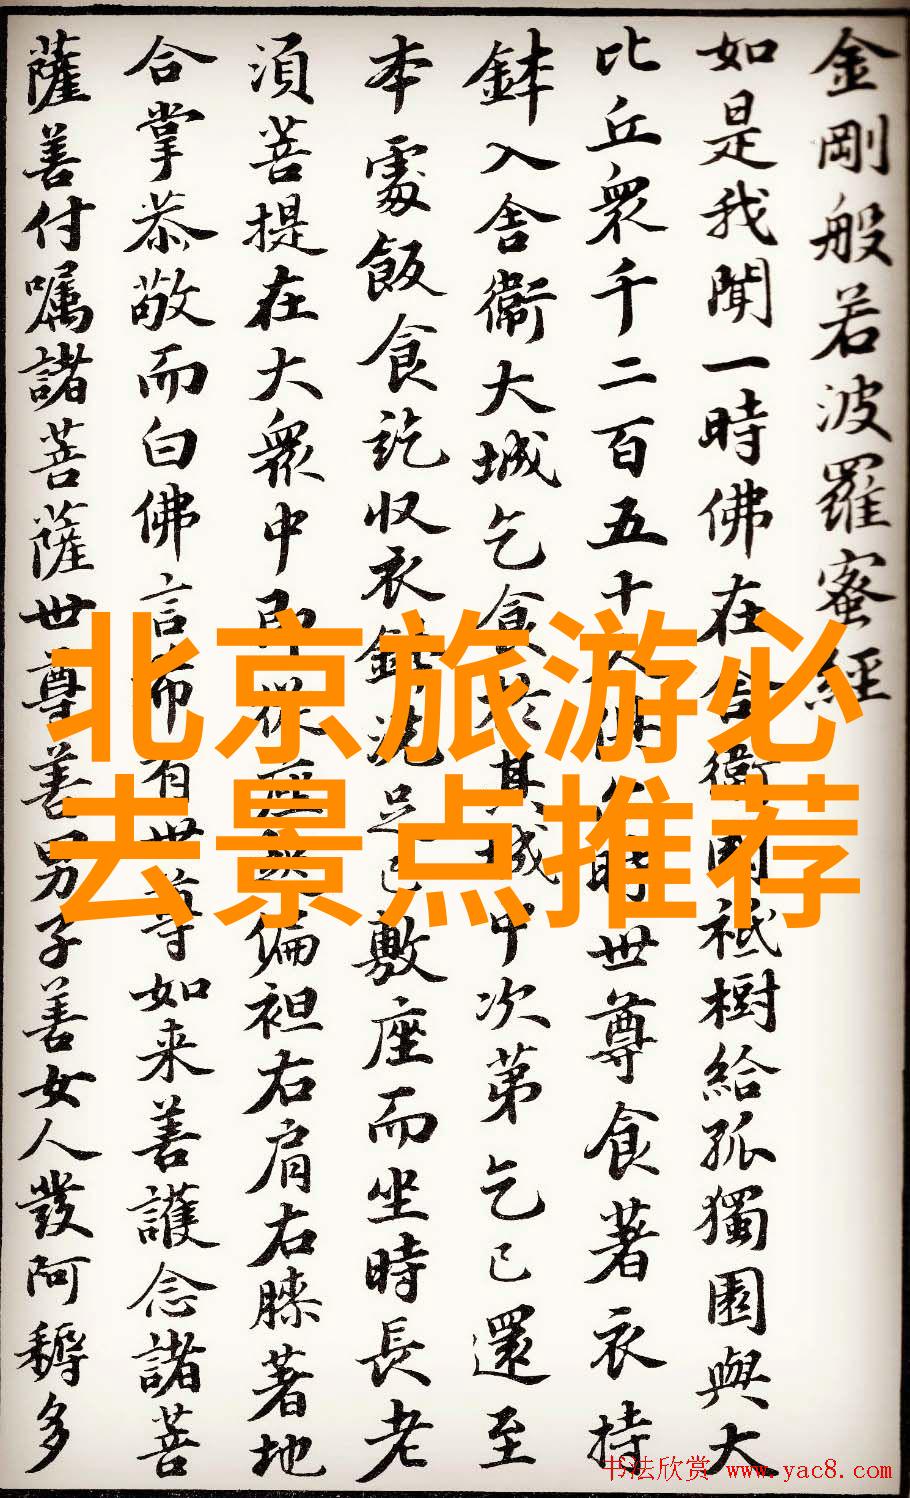 金剛般若波羅蜜經
如是我聞一時佛在舍衛國祇樹給孤獨園與大
比丘衆千二百五十人俱尒時世尊食著衣持
鉢入舍衛大城乞食於其城中次第乞已還至
本處飯食訖收衣鉢洗足已敷座而坐時長老
須菩提在大衆中即從座起偏袒右肩右膝著地
合掌恭敬而白佛言希有世尊如来善護念諸菩
薩善付嘱諸菩薩世尊善男子善女人發阿耨多
北京旅游必
去景点推荐
书法欣赏 www.yac8.com